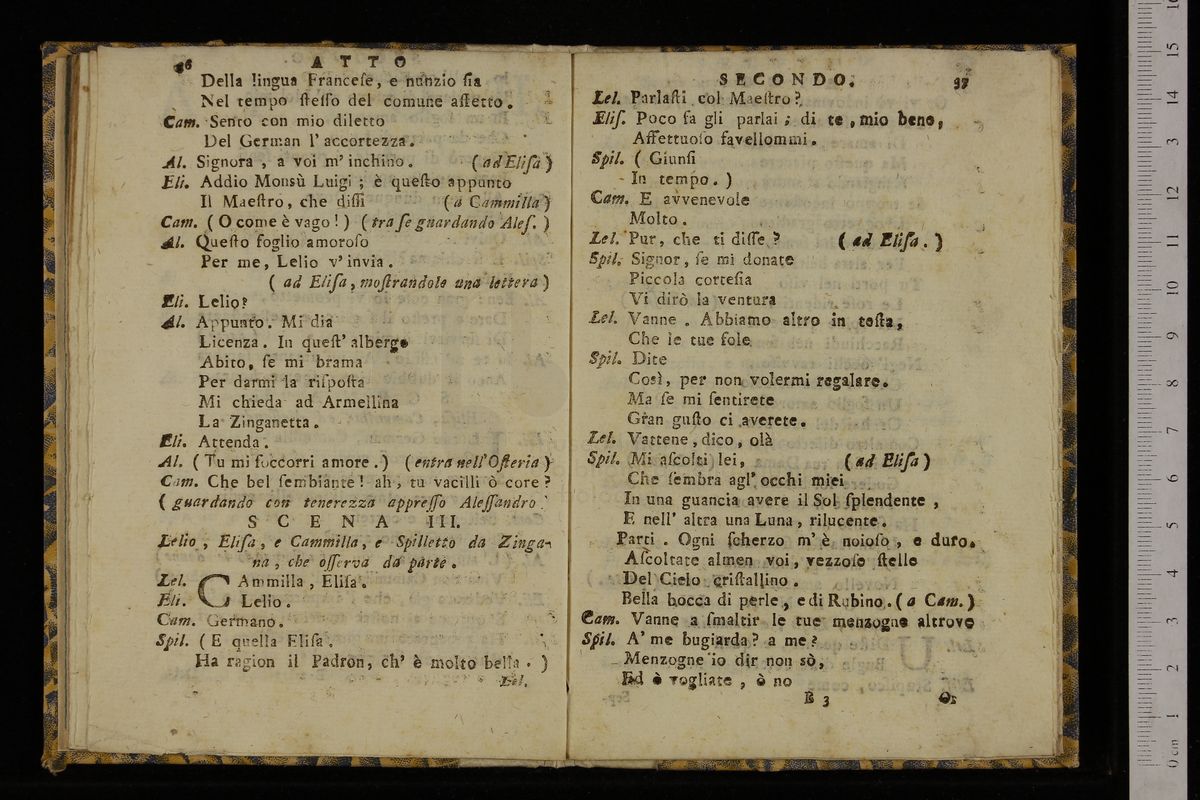 36 ATTO
Della lingua Franceſe, e nunzio ſia
Nel tempo ſteſſo del comune affetto.
Cam. Sento con mio diletto
Del German l' accortezza.
Al. Signora, a voi m' inchino. (ad Eliſa)
Eli. Addio Monsù Luigi; è queſto appunto
Il Maeſtro, che diſſi (a Cammilla)
Cam. (O come è vago!) (tra ſe guardando Aleſ.)
Al. Queſto foglio amoroſo
Per me, Lelio v' invia.
(ad Eliſa, moſtrandole una lettera)
Eli. Lelio?
Al. Appunto. Mi dia
Licenza. In queſt' albergo
Abito, ſe mi brama
Per darmi la riſpoſta
Mi chieda ad Armellina
La Zinganetta.
Eli. Attenda.
Al. (Tu mi ſoccorri amore.) (entra nell' Oſteria)
Cam. Che bel ſembiante! ah, tu vacilli ò core?
(guardando con tenerezza appreſſo Aleſſandro.
SCENA III.
Lelio, Eliſa, e Cammilla, e Spilletto da Zinga-
na, che oſſerva da parte.
Lel. CAmmilla, Eliſa.
Eli. Lelio.
Cam. Germano.
Spil. (E quella Eliſa.
Ha ragion il Padron, ch' è molto bella.)
Lel.
SECONDO. 37
Lel. Parlaſti col Maeſtro?
Eliſ. Poco fa gli parlai; di te, mio bene,
Affettuoſo favellommi.
Spil. (Giunſi
In tempo.)
Cam. E avvenevole
Molto.
Lel. Pur, che ti diſſe? (ad Eliſa.)
Spil. Signor, ſe mi donate
Piccola corteſia
Vi dirò la ventura
Lel. Vanne. Abbiamo altro in teſta,
Che le tue fole
Spil. Dite
Così, per non volermi regalare.
Ma ſe mi ſentirete
Gran guſto ci averete.
Lel. Vattene, dico, olà
Spil. Mi aſcolti lei, (ad Eliſa)
Che ſembra agl' occhi miei
In una guancia avere il Sol ſplendente,
E nell' altra una Luna, rilucente.
Parti. Ogni ſcherzo m' è noioſo, e duro.
Aſcoltate almen voi, vezzoſe ſtelle
Del Cielo criſtallino.
Bella bocca di perle, e di Rubino. (a Cam.)
Cam. Vanne a ſmaltir le tue menzogne altrove
Spil. A' me bugiarda? a me?
Menzogne io dir non sò,
Ed ò vogliate, ò no
E 3 Or